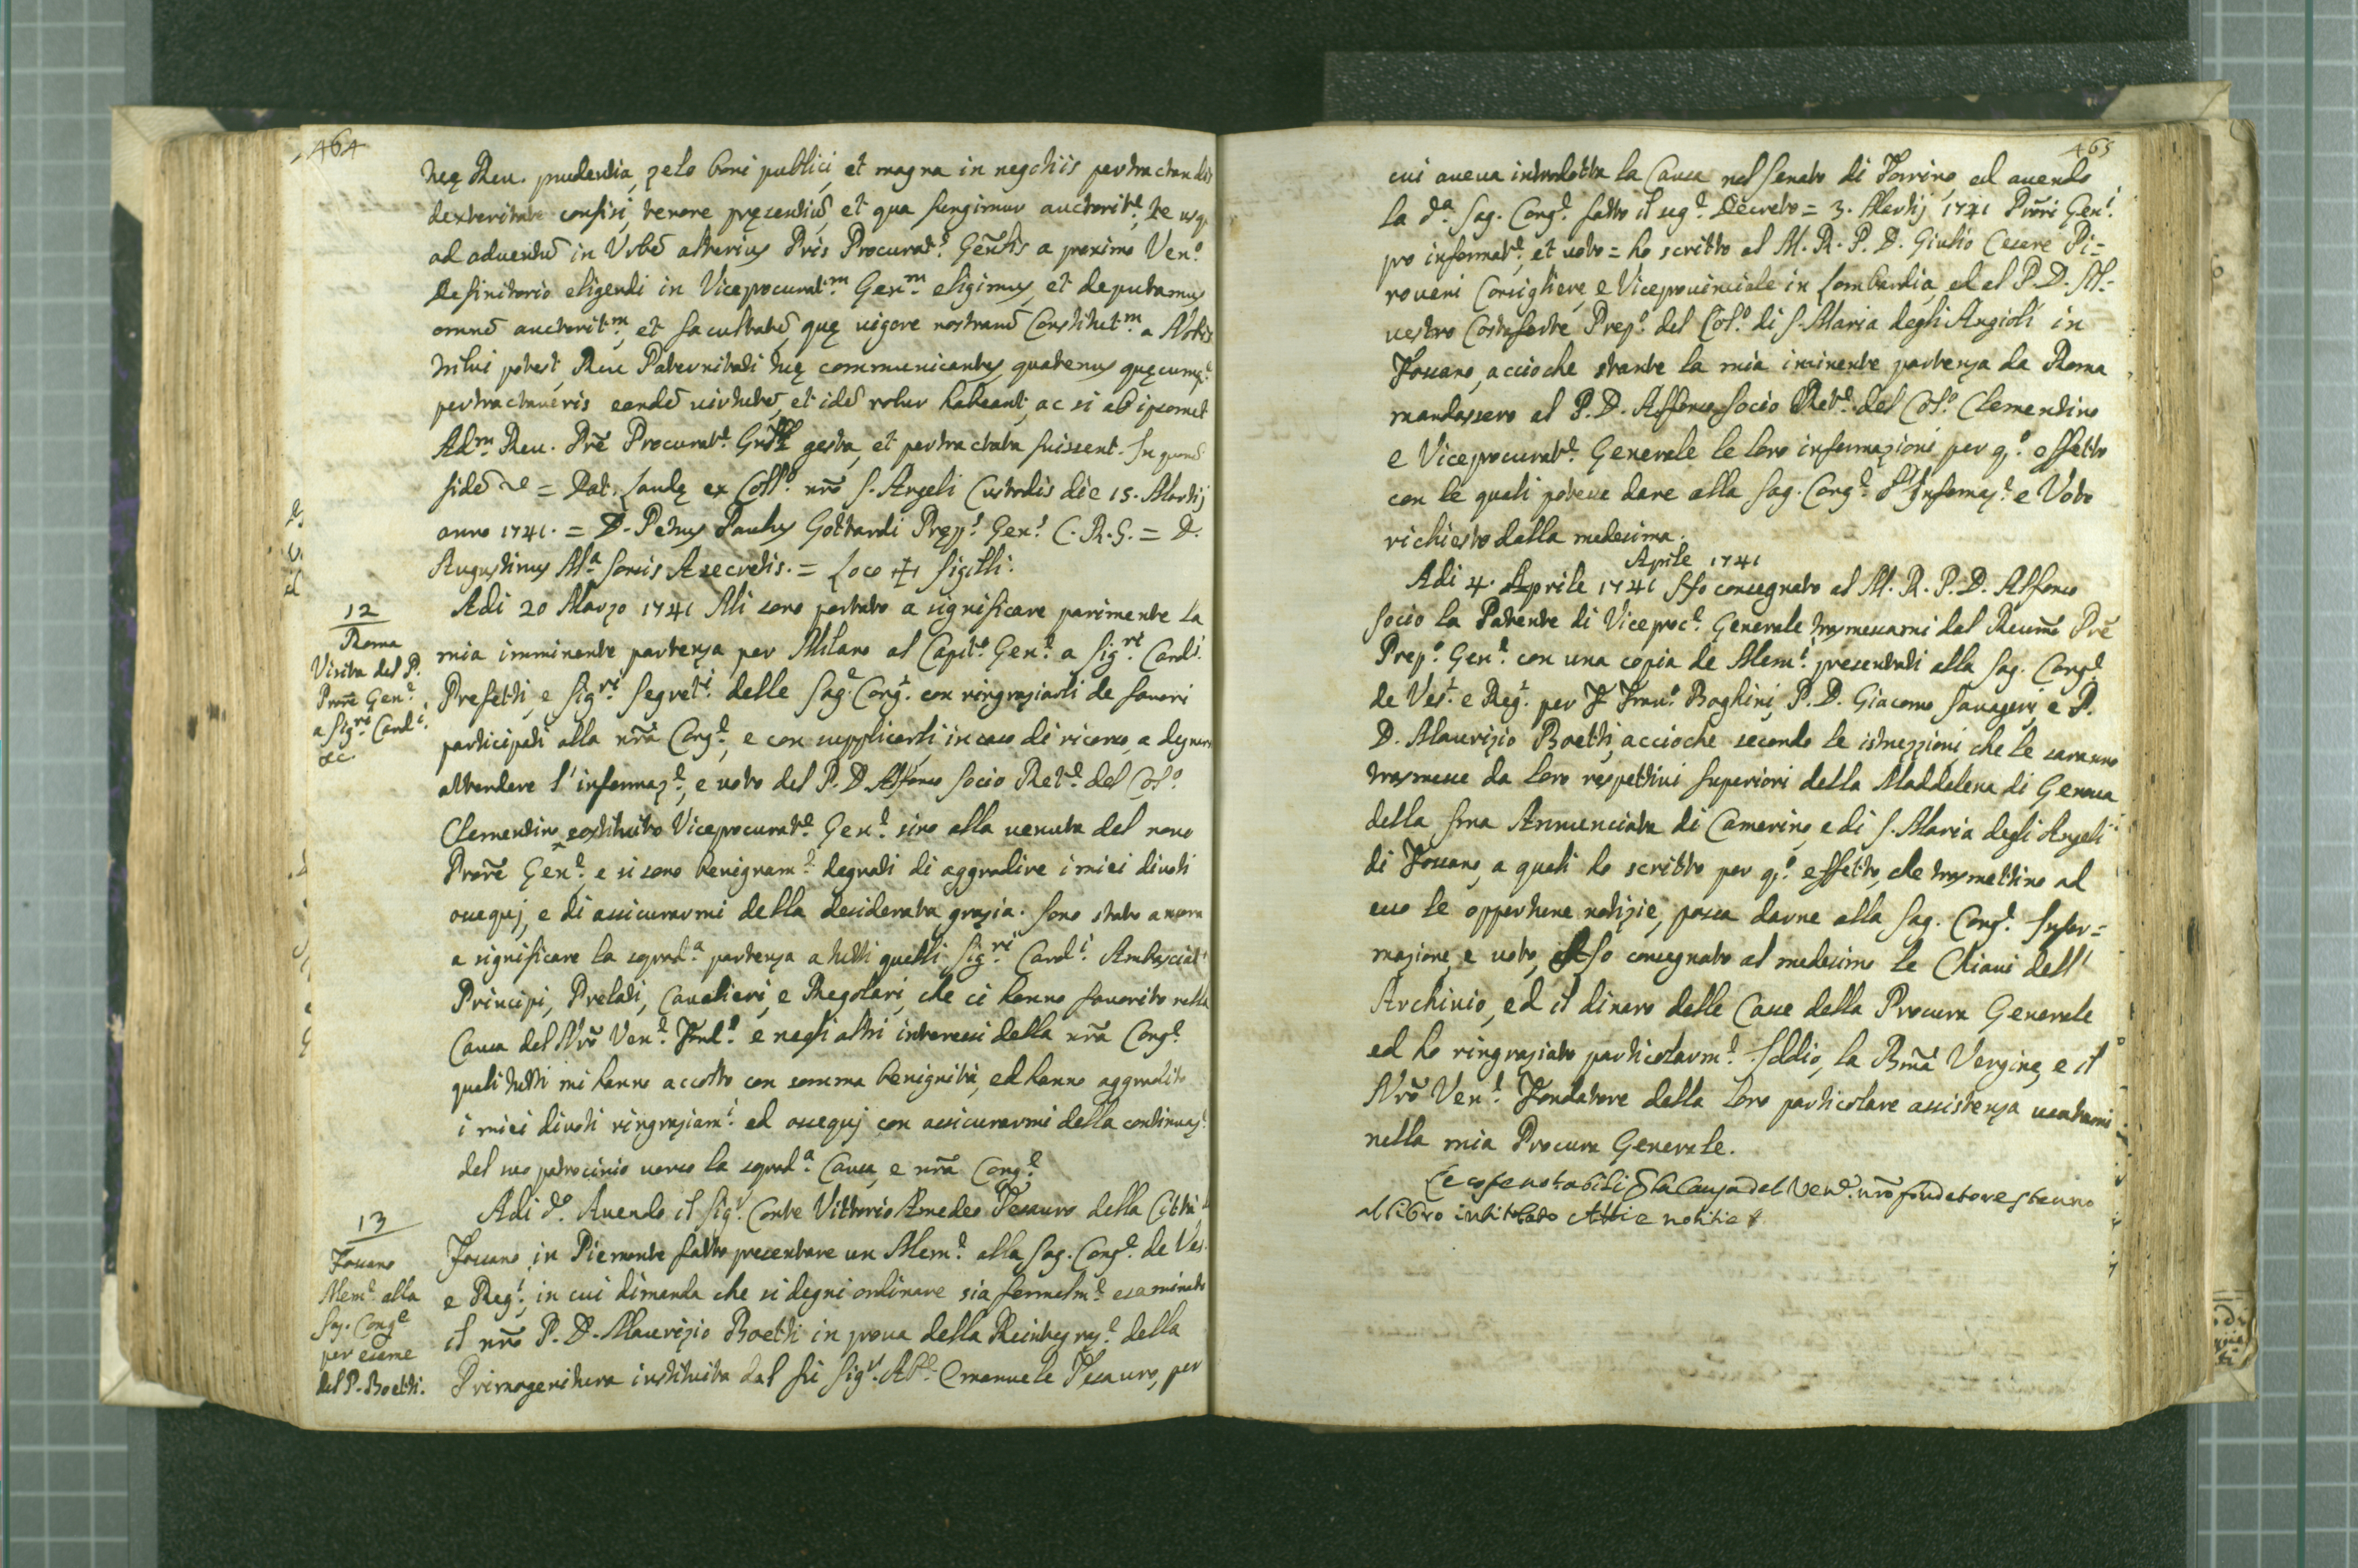 464
tuę Reu. prudentia, zelo boni publici, et magna in negotiis pertractandis
dexteritate confisi, tenore pręsentiũ, et qua fungimur auctorit.e, te usq.
ad aduentũ in Vrbẽ alterius Pris Procurat.s Gen̄lis a proximo Ven.o
Definitorio eligendi in Viceprocurat.m Gen.m eligimus, et deputamus
omnẽ auctorit.m, et facultatẽ, quę uigore nostrarũ Constitut.m a Nobis
tribui potest, Reu. Paternitati tuę communicantes, quatenus quęcumq.
pertractaueris eandẽ uirtutẽ, et idẽ robur habeant, ac si ab ipsomet
Ad.m Reu. Prē Procurat.e gesta, et pertractata fuissent. In quorũ
fidẽ = Dat. Laudę ex Coll.o nrō S. Angeli Custodis die 15. Martij
anno 1741. = D. Petrus Paulus Gottardi Pręp.s Gen.s C. R. S. = D.
Augustinus M.a Sorsis A secretis. = Loco ✠ Sigilli.
12
Roma
Visita del P.
Prorē Gen.e
a Sig.ri Card.i
&c.
Adi 20 Marzo 1741 Mi sono portato a significare parimente la
mia imminente partenza per Milano al Capit.o Gen.e a Sig.ri Card.i
Prefetti, e Sig.ri Segret.i delle Sag.e Cong.i con ringraziarli de fauori
participati alla nrā Cong.e, e con supplicarli, in caso di ricorso, a degnarsi
attendere l'informaz.e, e uoto del P. D. Alfonso Socio Ret.e del Col.o
Clementino costituito Viceprocurat.e Gen.e sino alla uenuta del nouo
Prorē Gen.e, e si sono benignam.e degnati di aggradire i miei diuoti
ossequj, e di assicurarmi della desiderata grazia. Sono stato ancora
a significare la soprad.a partenza a tutti quelli Sig.ri Card.i Ambasciat.i
Principi, Prelati, Caualieri, e Regolari, che ci hanno fauorito nella
Causa del Nrō Ven.e Fond.e e negli altri interessi della nrā Cong.e
quali tutti mi hanno accolto con somma benignità, ed hanno aggradito
i miei diuoti ringraziam.i ed ossequj con assicurarmi della continuaz.e
del suo patrocinio uerso la soprad.a Causa, e nrā Cong.e
13
Fossano
Mem.e alla
Sag. Cong.e
per esame
del P. Boetti.
Adi d.o Auendo il Sig.r Conte Vittorio Amedeo Tesauro della Città di
Fossano in Piemonte fatto presentare un Mem.e alla Sag. Cong.e de Ves.
e Reg.i, in cui dimanda che si degni ordinare sia formalm.e esaminato
il nrō P. D. Maurizio Boetti in proua della Reintegraz.e della
Primogenitura instituita dal fù Sig.r Ab.e Emanuele Tesauro, per
465
cui aueua introdotta la Causa nel Senato di Torino, ed auendo
la d.a Sag. Cong.e fatto il seg.e Decreto = 3. Martij 1741 Prōri Gen.i
pro informat.e, et uoto = ho scritto al M. R. P. D. Giulio Cesare Pi=
roueri Consigliere, e Viceprouinciale in Lombardia, ed al P. D. Sil=
uestro Costaforte Prep.o del Col.o di S. Maria degli Angioli in
Fossano, accioche stante la mia iminente partenza da Roma
mandassero al P. D. Alfonso Socio Ret.e del Col.o Clementino
e Viceprocurat.e Generale le loro informazioni per q.o effetto
con le quali poteua dare alla Sag. Cong.e l'Informaz.e e Voto
richiesto dalla medesima.
Aprile 1741
Adi 4. Aprile 1741 Ho consegnato al M. R. P. D. Alfonso
Socio la Patente di Viceproc.e Generale trasmessami dal Reum̃o Prē
Prep.o Gen.e con una copia de Mem.i presentati alla Sag. Cong.e
de Ves.i e Reg.i per F. Fran.o Boghini, P. D. Giacomo Sauageri, e P.
D. Maurizio Boetti, accioche secondo le istruzzioni che le saranno
trasmesse da loro respettiui Superiori della Maddalena di Genoua
della Ssma Annunciata di Camerino, e di S. Maria degli Angeli
di Fossano, a quali ho scritto per q.o effetto, che trasmettino ad
esso le opportune notizie, possa darne alla Sag. Cong.e Infor=
mazione, e uoto, Ho consegnato al medesimo le Chiaui dell'
Archiuio, ed il dinaro delle Casse della Procura Generale
ed ho ringraziato particolarm.e Iddio, la Bmā Vergine, e il
Nrō Ven.e Fondatore della loro particolare assistenza usatami
nella mia Procura Generale.
Le cose notabili p la Causa del Ven.e nrō fondatore stanno
al libro intitolato Atti e notitie &